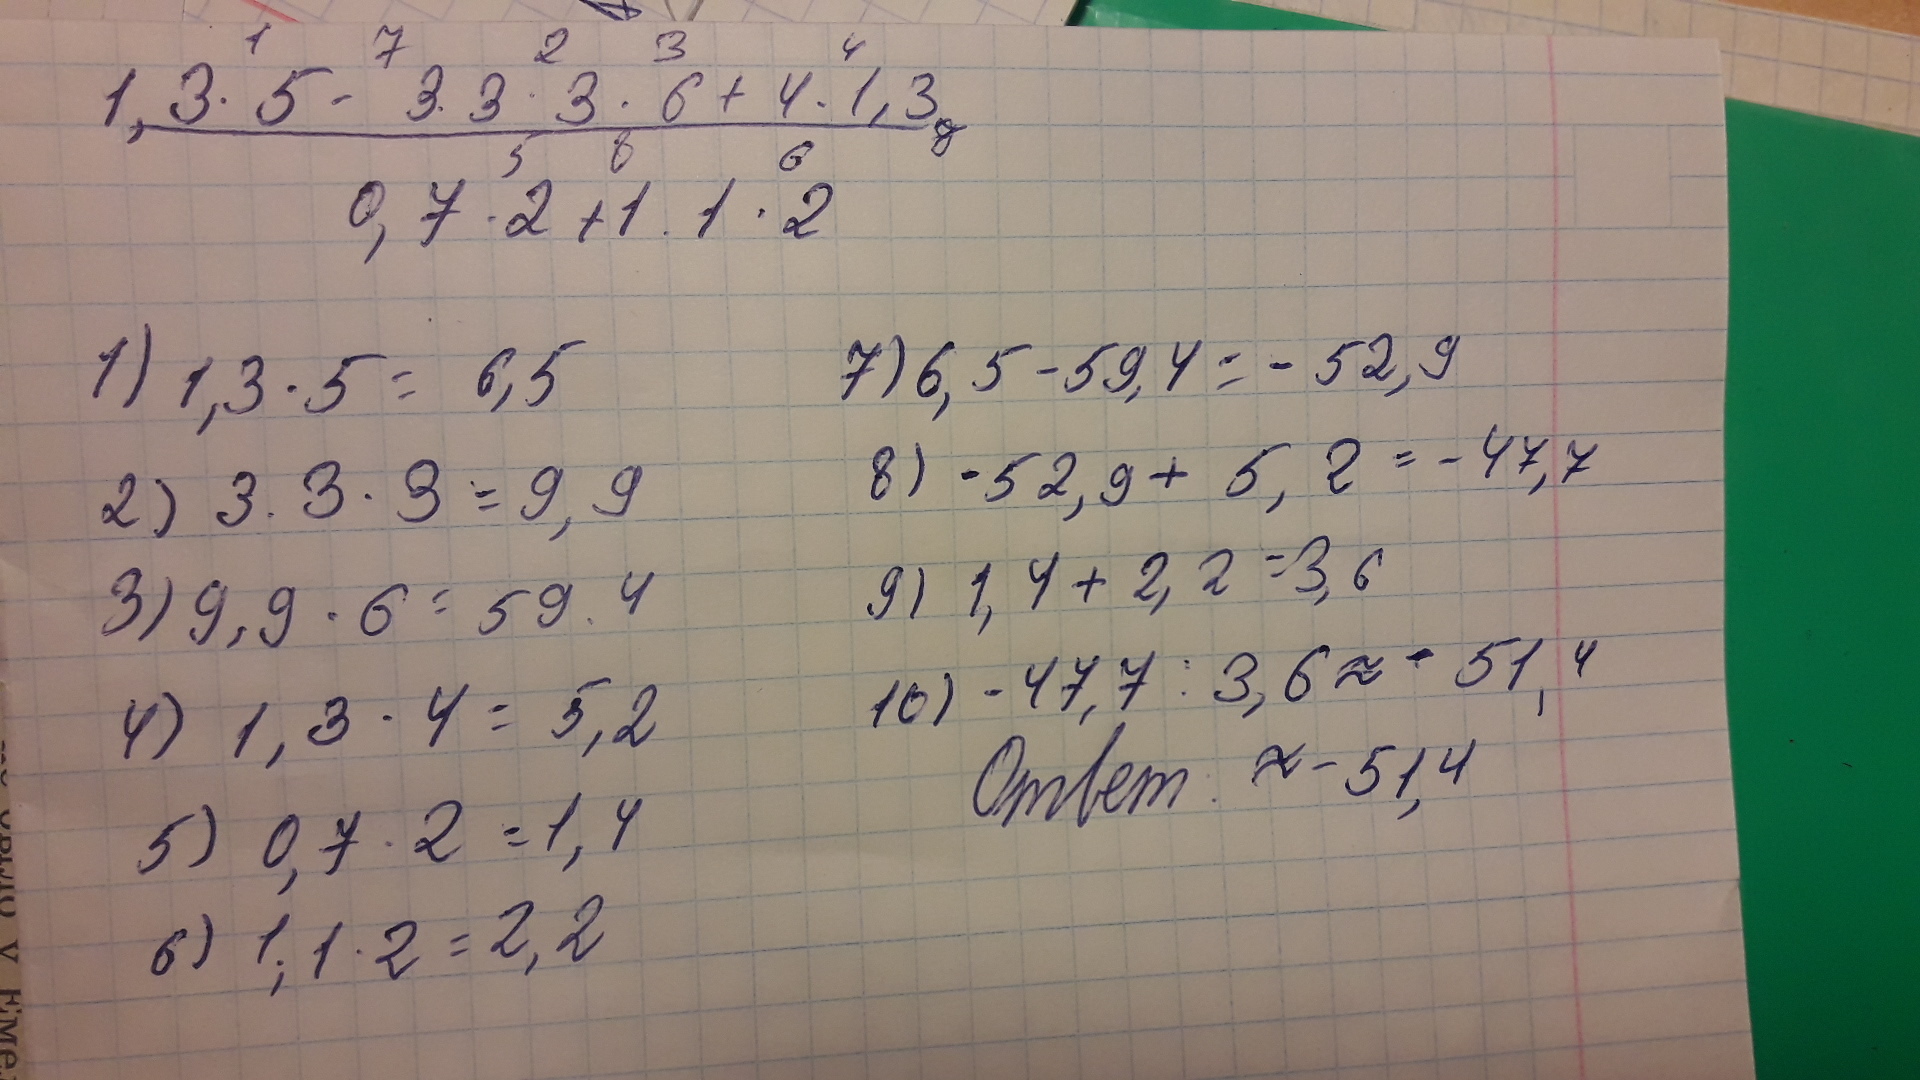 1 7 2 3 4
1,3·5- 3.3·3·6+4·1,3
5 8 6
0,7·2+1.1·2
1) 1,3·5= 6,5
2) 3.3·3=9,9
3) 9,9·6=59.4
4) 1,3·4=5,2
5) 0,7·2=1,4
6) 1,1·2=2,2
7) 6,5-59,4=-52,9
8) -52,9+5,2=-47,7
9) 1,4+2,2=3,6
10) -47,7:3,6≈-51,4
Ответ: ≈-51,4